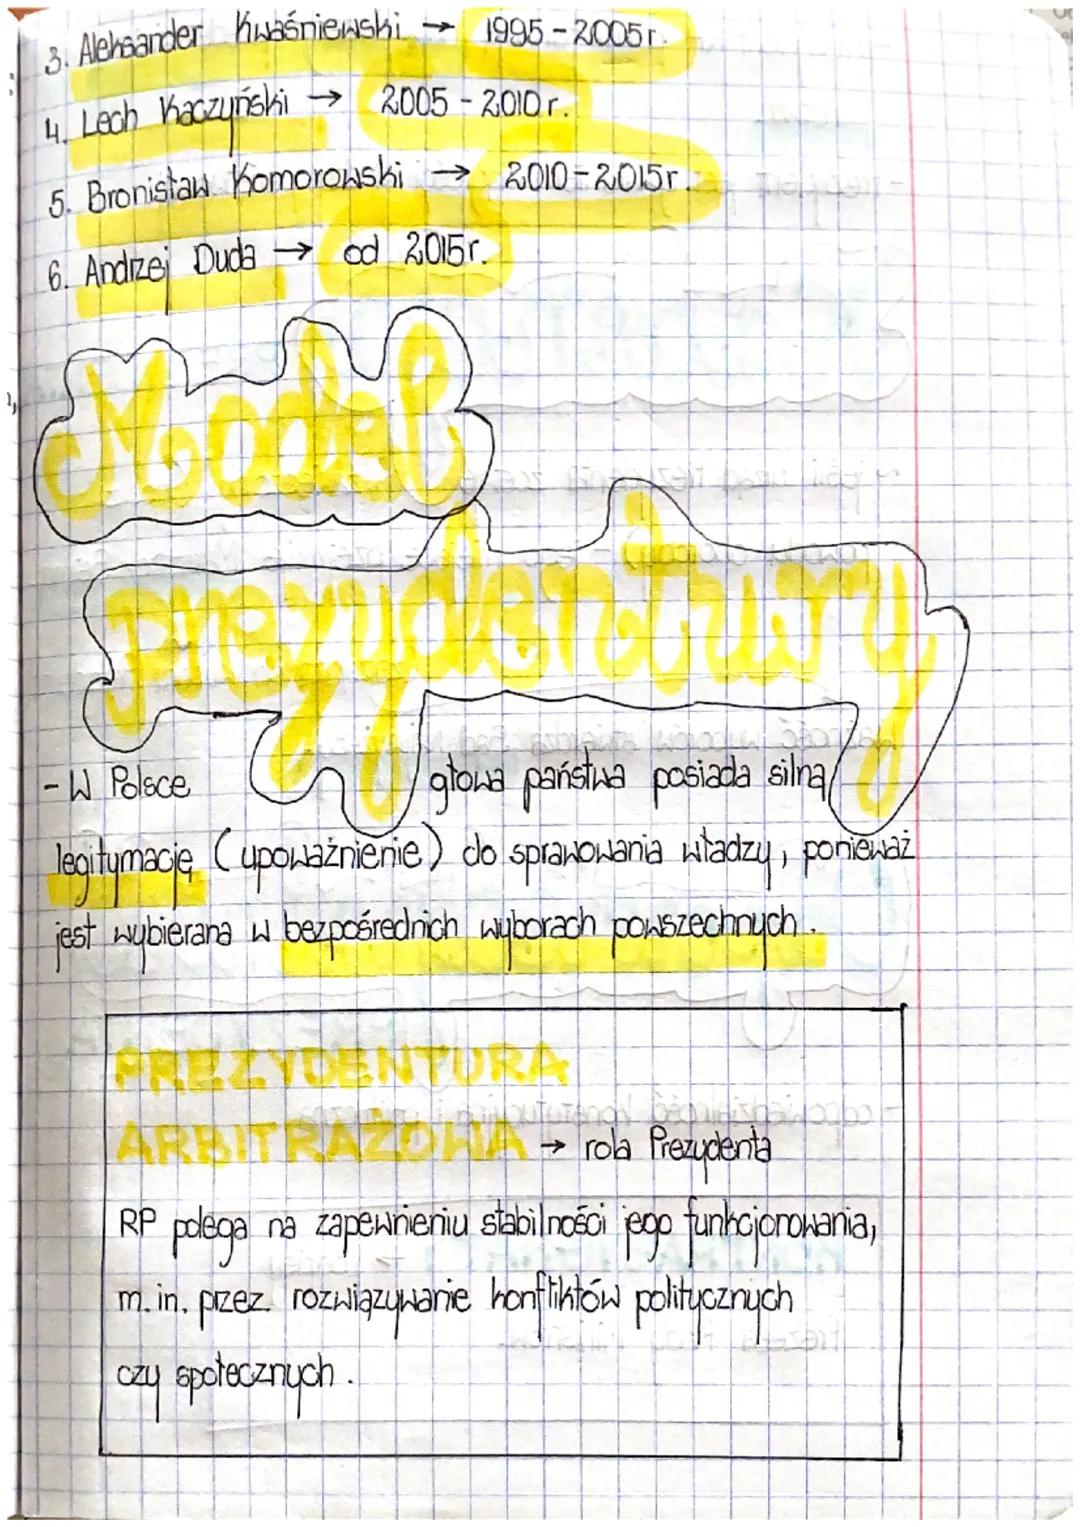 3. Aleksander Kwaśniewski → 1995 - 2005 r.
4. Lech Kaczyński → 2005 - 2010 r.
5. Bronisław Komorowski → 2010 - 2015 r.
6. Andrzej Duda → od 2015 r.
Model
prezydentury
- W Polsce głowa państwa posiada silną
legitymację (upoważnienie) do sprawowania władzy, ponieważ
jest wybierana w bezpośrednich wyborach powszechnych.
PREZYDENTURA
ARBITRAŻOWA → rola Prezydenta
RP polega na zapewnieniu stabilności jego funkcjonowania,
m. in. przez rozwiązywanie konfliktów politycznych
czy społecznych.